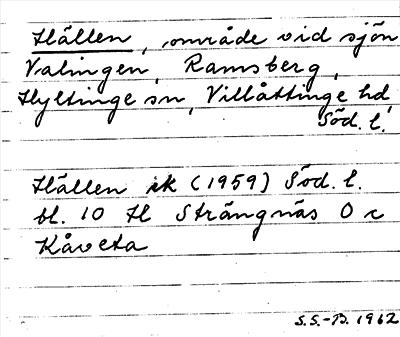 Hällen, område vid sjön
Valingen, Ramsberg,
Hyltinge sn, Villåttinge hd,
Söd. l.
Hällen ik (1959) Söd. l.
bl. 10 H Strängnäs O c
Kåveta
S.S.-B. 1962